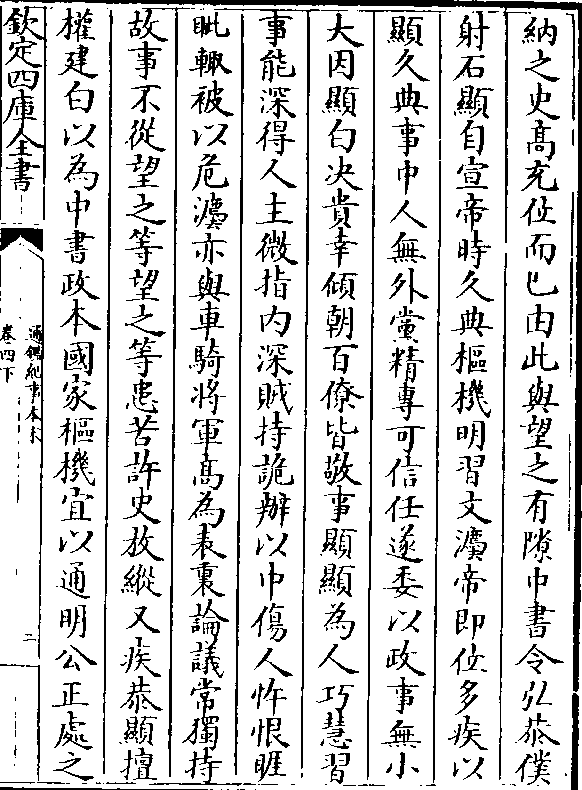 納之史髙充位而已由此與望之有隙中書令弘恭僕
射石顯自宣帝時久典樞機明習文灋帝即位多疾以
顯久典事中人無外黨精專可信任遂委以政事無小
大因顯白决貴幸傾朝百僚皆敬事顯顯為人巧慧習
事能深得人主微指内深賊持詭辯以中傷人忤恨睚
眦輒被以危灋亦與車騎將軍髙為表裏論議常獨持
故事不從望之等望之等患苦許史放縱又疾恭顯擅
權建白以為中書政本國家樞機宜以通明公正處之
欽定四庫全書
通鑑紀事本末
卷四下
二